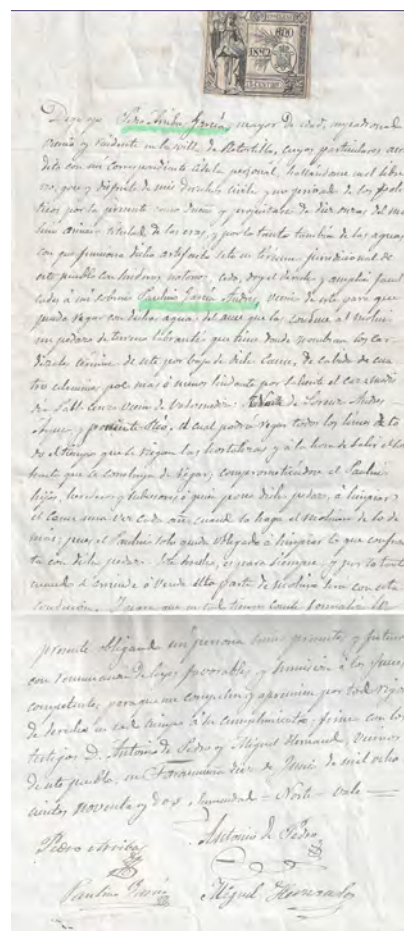 1892
Digo yo Pedro Arriba García, mayor de edad,
vecino y residente en la villa de Retortillo, cuyos particulares acre
dito con mi correspondiente cédula personal, hallándome en el libre
uso, goce y disfrute de mis derechos civiles y no privado de los polí
ticos por la presente como dueño y propietario de diez oras del mo
lino titulado de las eras, y por lo tanto tambien de las aguas
con que funciona dicho artefacto sito en término jurisdicional de
este pueblo con linderos notorios, cedo, doy el derecho y amplia facul
tad a mi sobrino Paulino García Andres, vecino de este para que
pueda regar con dicha agua del cauce que las conduce al molino
un pedazo de terreno que tiene donde nombran los Car
término de este por bajo de dicho Cauce, de cabida de cua
tro celemines poco mas ó menos lindante por
vecino de Norte de Andres
y poniente el cual podrá regar todos los to
do el tiempo que se riegan las hortalizas y á la hora de salir el sol
hasta que se concluya de regar, comprometiendose el Paulino
hijos, herederos y á quien posea dicho pedazo, á limpiar
el Cauce una vez cada año cuando lo haga el molino de lo de
más; pues el Paulino solo queda obligado á limpiar lo que confron
ta con dicho pedazo. hecho, es para siempre, y por lo tanto
cuando se ó venda esta parte de molino sera con esta
condición. Y para que en todo tiempo conste
presente obligando mi persona bienes presentes y futuros
con renuncia de leyes favorables y sumision á los Jueces
competentes, para que me compelan y apremien por todo rigor
de derecho en todo tiempo á su cumplimiento, firmo con los
testigos D. Antonio de Pedro y Miguel Hernando, vecinos
de este pueblo, en diez de Junio de mil ocho
cientos noventa y dos. Enmendado = Norte = vale =
Pedro Arriba
Antonio de Pedro
Paulino García
Miguel Hernando